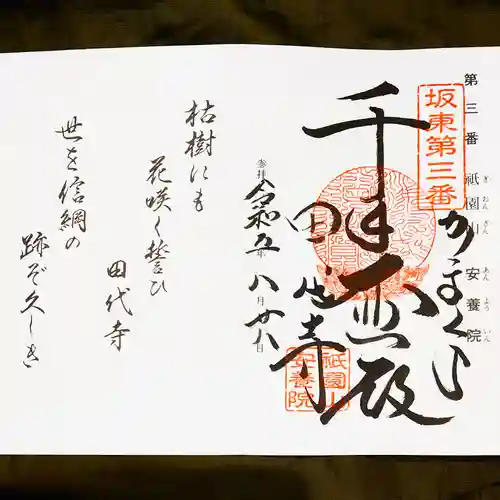 第三番 祇園山 安養院
ぎおんざん あんよういん
坂東第三番
かまくら
千手大悲殿
田代寺
祇園山
安養院
参拝
令和五年八月廿八日
枯樹にも
花咲く誓ひ
田代寺
世を信綱の
跡ぞ久しき